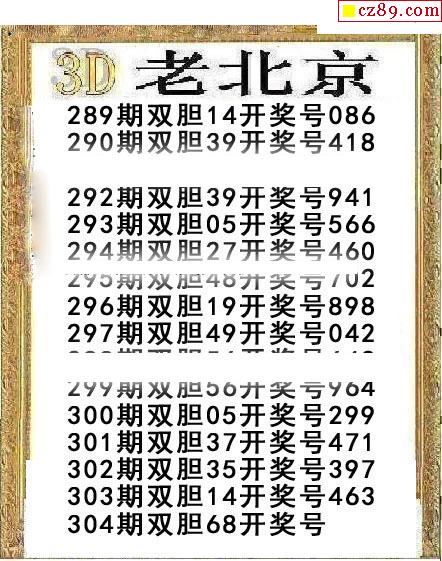 cz89.com
3D 老北京
289期双胆14开奖号086
290期双胆39开奖号418
292期双胆39开奖号941
293期双胆05开奖号566
294期双胆27开奖号460
295期双胆48开奖号702
296期双胆19开奖号898
297期双胆49开奖号042
299期双胆56开奖号964
300期双胆05开奖号299
301期双胆37开奖号471
302期双胆35开奖号397
303期双胆14开奖号463
304期双胆68开奖号